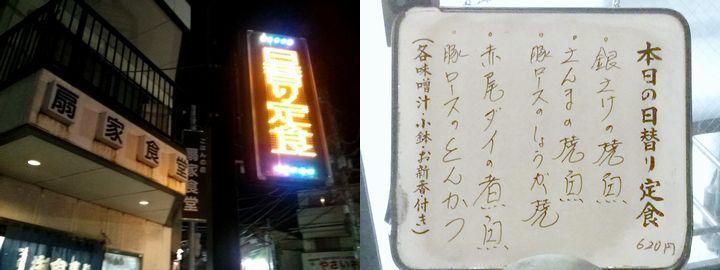 扇家食堂
日替り定食
ごはんの店
扇家食堂
やさい
本日の日替り定食
620円
・銀さけの焼魚
・さんまの焼魚
・豚ロースのしょうが焼
・赤尾ダイの煮魚
・豚ロースのとんかつ
(各味噌汁・小鉢・お新香付き)